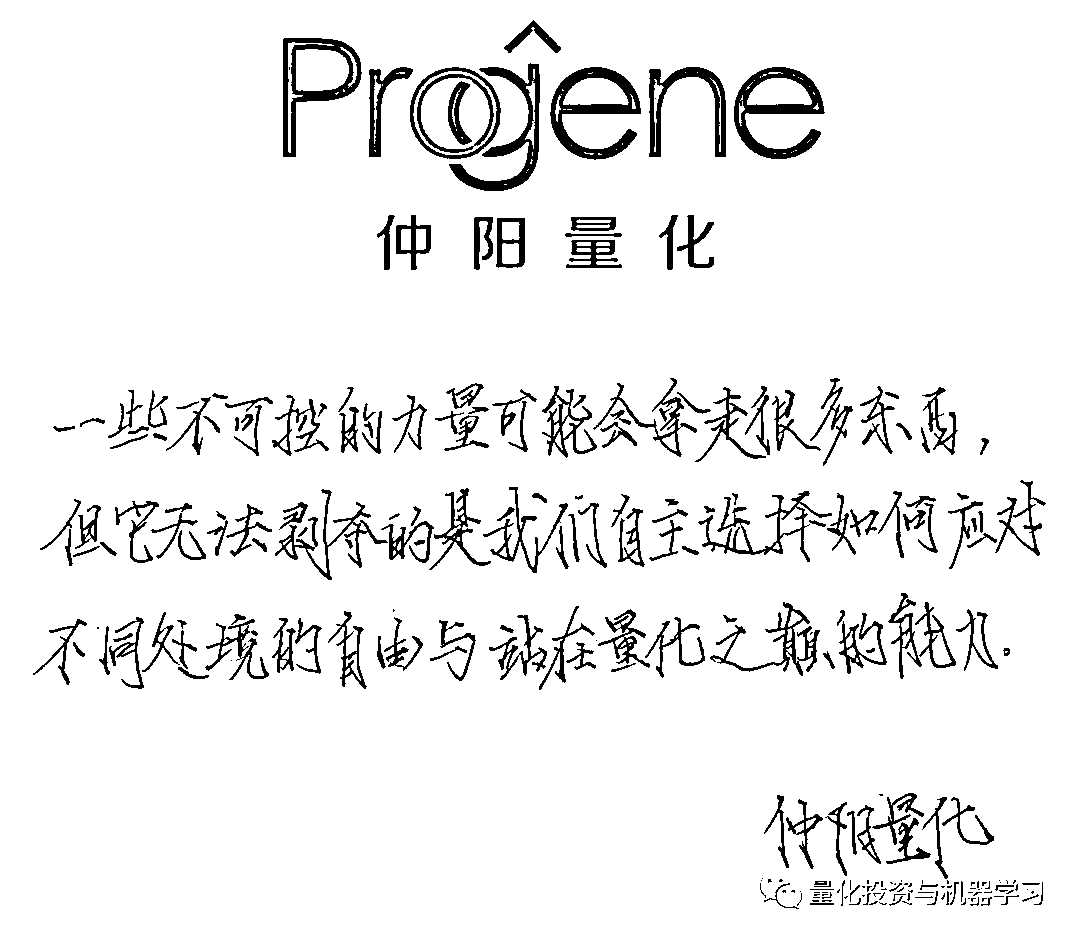 Progêne
仲阳量化
一些不可控的力量可能会拿走很多东西，
但它无法剥夺的是我们自主选择如何应对
不同处境的自由与站在量化之巅的能力.
仲阳量化
量化投资与机器学习